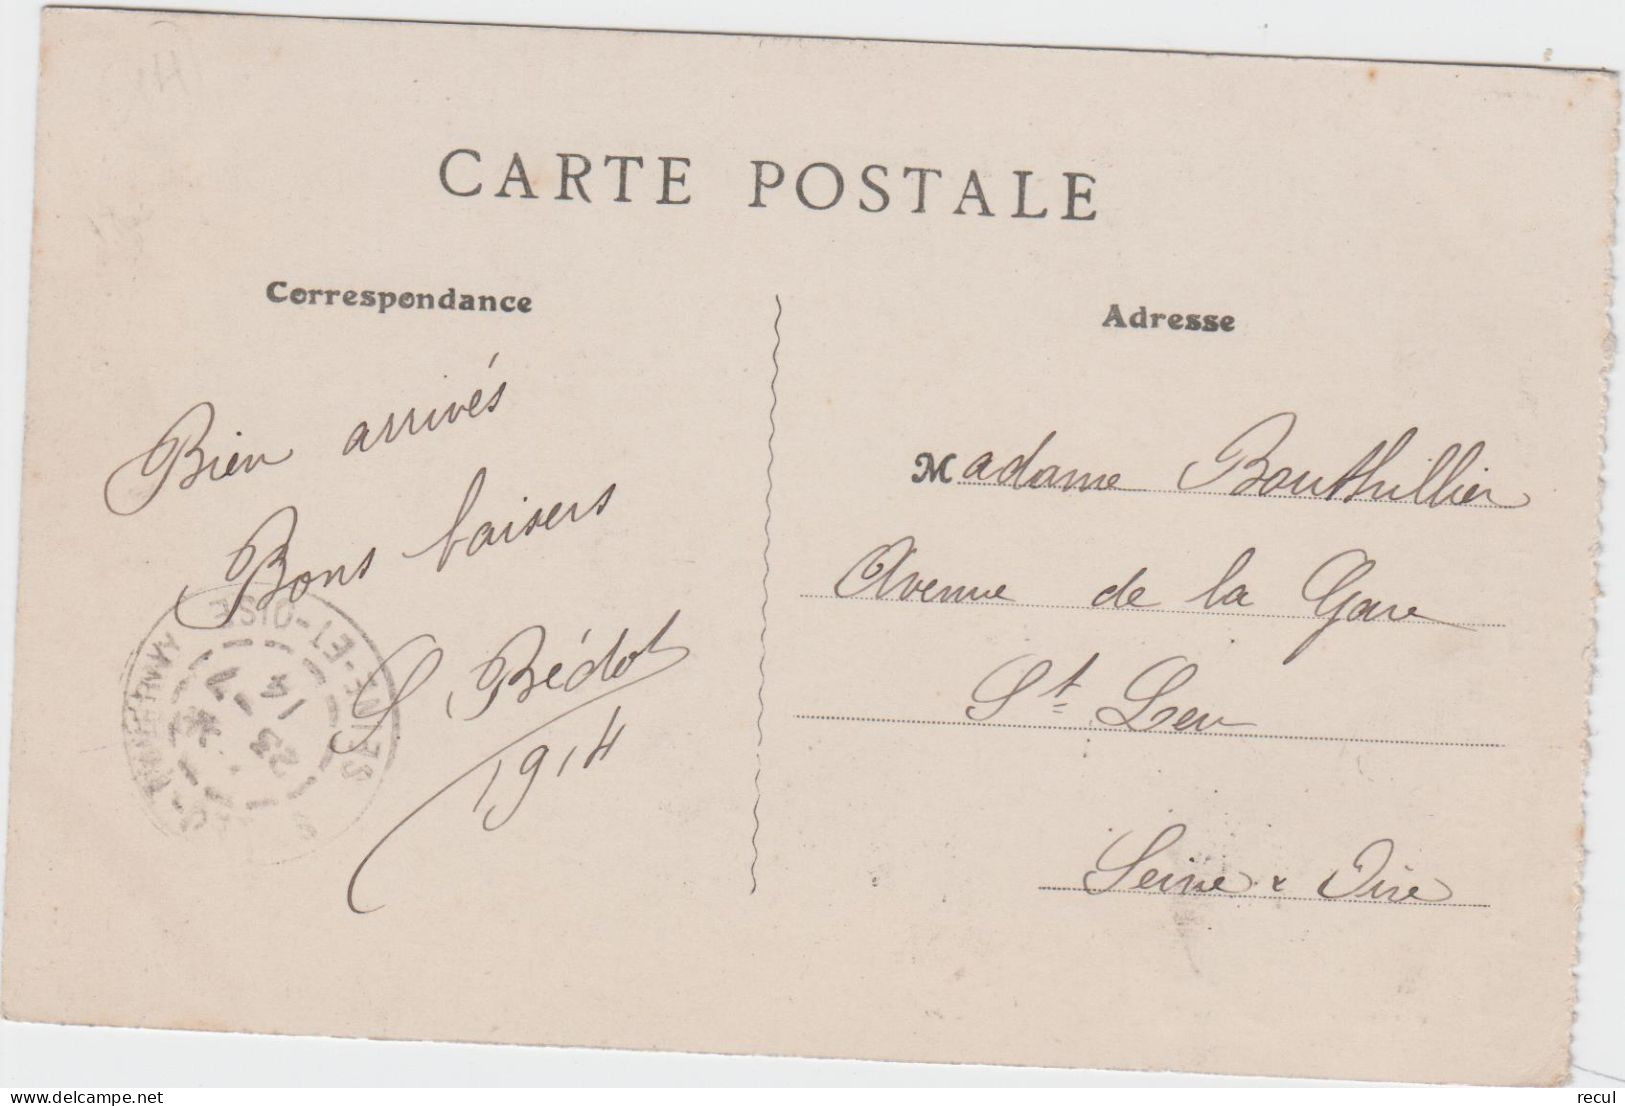 CARTE POSTALE
Correspondance
Bien arrivés
Bons baisers
L Bédot
1914
SEINE-ET-OISE
23 -7
14
Adresse
Madame Bouthillier
Avenue de la Gare
St Leu
Seine & Oise
delcampe.net
recul